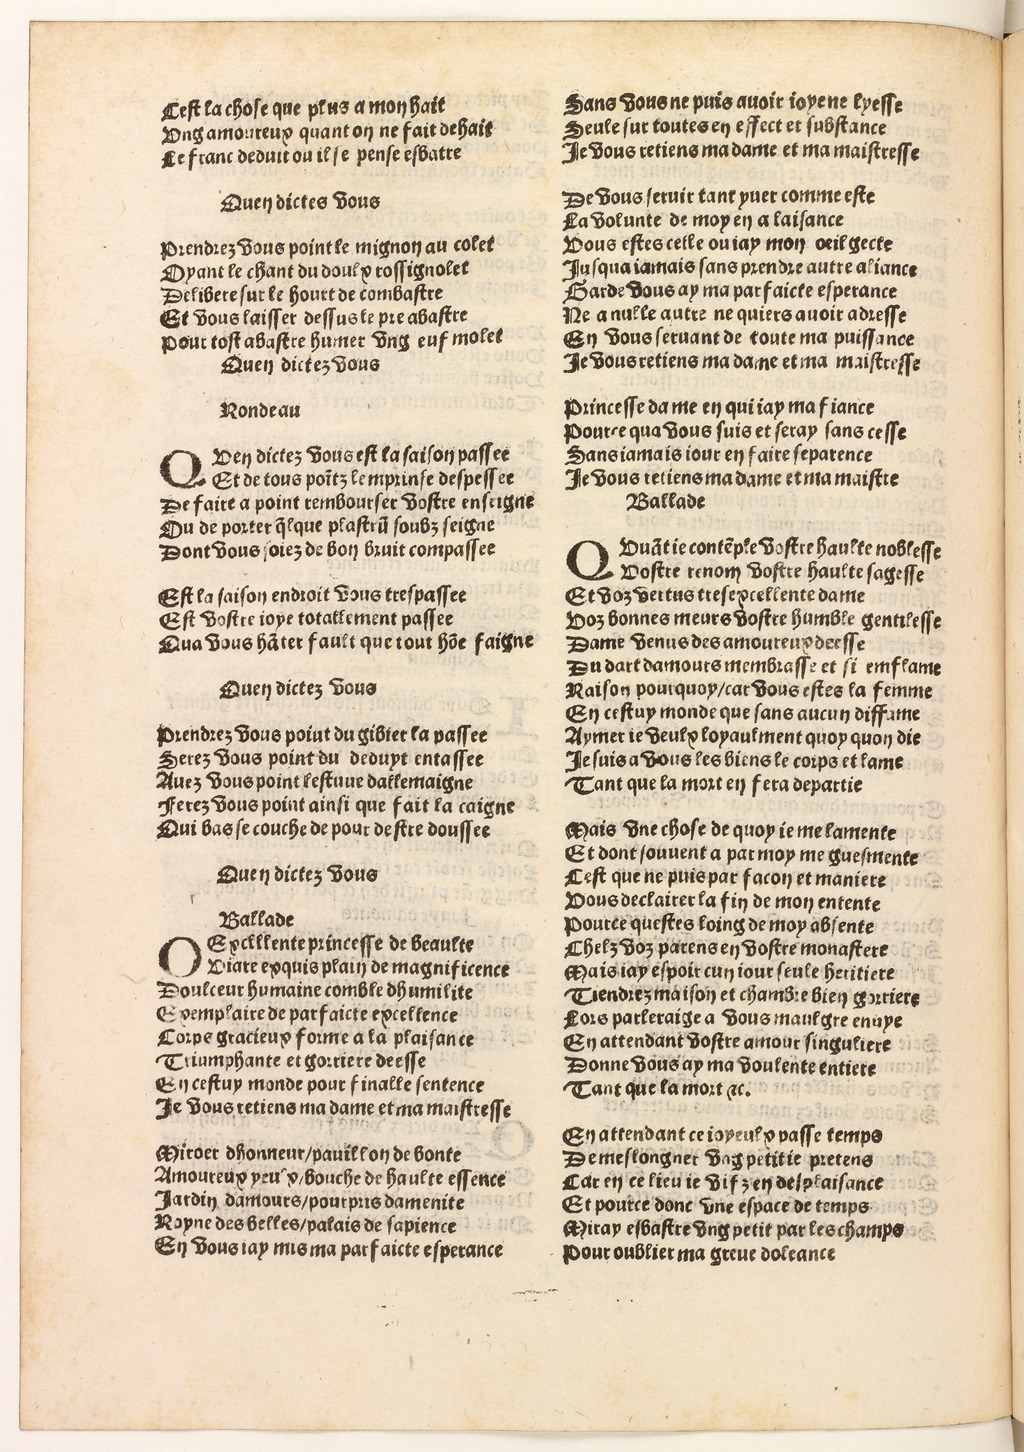 Cest la chose que plus a mon hait
Ung amoureux quant on ne fait dehait
Le franc deduit ou il se pense esbatre
Quen dictes vous
Prendrez vous point le mignon au colet
Oyant le chant du doulx rossignolet
Delibere sur le hourt de combastre
Et vous laisser dessus le pre abastre
Pour tost abastre humer ung euf molet
Quen dictez vous
Rondeau
QUen dictez vous est la saison passee
Et de tous poĩtz lemprinse despessee
De faire a point rembourser vostre enseigne
Ou de porter q̃lque plastrũ soubz seigne
Dont vous soiez de bon bruit compassee
Est la saison endroit vous trespassee
Est vostre ioye totallement passee
Qua vous hãter fault que tout hõe faigne
Quen dictez vous
Prendrez vous point du gibier la passee
Serez vous point du deduyt entassee
Auez vous point lestuue dallemaigne
Ferez vous point ainsi que fait la caigne
Qui bas se couche de pour destre doussee
Quen dictez vous
Ballade
O Excellente princesse de beaulte
Viare exquis plain de magnificence
Doulceur humaine comble dhumilite
Exemplaire de parfaicte excellence
Corps gracieux forme a la plaisance
Triumphante et gorriere deesse
En cestuy monde pour finalle sentence
Je vous retiens ma dame et ma maistresse
Miroer dhonneur/pauillon de bonte
Amoureux yeulx/bouche de haulte essence
Jardin damours/pourpris damenite
Royne des belles/palais de sapience
En vous iay mis ma parfaicte esperance
Sans vous ne puis auoir ioye ne lyesse
Seule sur toutes en effect et substance
Je vous retiens ma dame et ma maistresse
De vous seruir tant yuer comme este
La volunte de moy en a laisance
Vous estes celle ou iay mon oeil gecte
Jusqua iamais sans prendre autre aliance
Garde vous ay ma parfaicte esperance
Ne a nulle autre ne quiers auoir adresse
En vous seruant de toute ma puissance
Je vous retiens ma dame et ma maistresse
Princesse dame en qui iay ma fiance
Pource qua vous suis et seray sans cesse
Sans iamais iour en faire separence
Je vous retiens ma dame et ma maistre
Ballade
QUuãt ie contẽple vostre haulte noblesse
Vostre renom vostre haulte sagesse
Et voz vertus tresexcellente dame
Voz bonnes meurs vostre humble gentilesse
Dame venus des amoureux deesse
Du dart damours membrasse et si emflame
Raison pourquoy/car vous estes la femme
En cestuy monde que sans aucun diffame
Aymer ie veulx loyaulment quoy quon die
Je suis a vous les biens le corps et lame
Tant que la mort en fera departie
Mais vne chose de quoy ie me lamente
Et dont souuent a par moy me guesmente
Cest que ne puis par facon et maniere
Vous declairer la fin de mon entente
Pource questes loing de moy absente
Chelz voz parens en vostre monastere
Mais iay espoir cun iour seule heritiere
Tiendrez maison et chambre bien gorriere
Lors parleraige a vous maulgre enuye
En attendant vostre amour singuliere
Donne vous ay ma voulente entiere
Tant que la mort ⁊c.
En attendant ce ioyeulx passe temps
De meslongner vng petit ie pretens
Car en ce lieu ie vifz en desplaisance
Et pource donc vne espace de temps
Miray esbastre vng petit par les champs
Pour oublier ma greue doleance